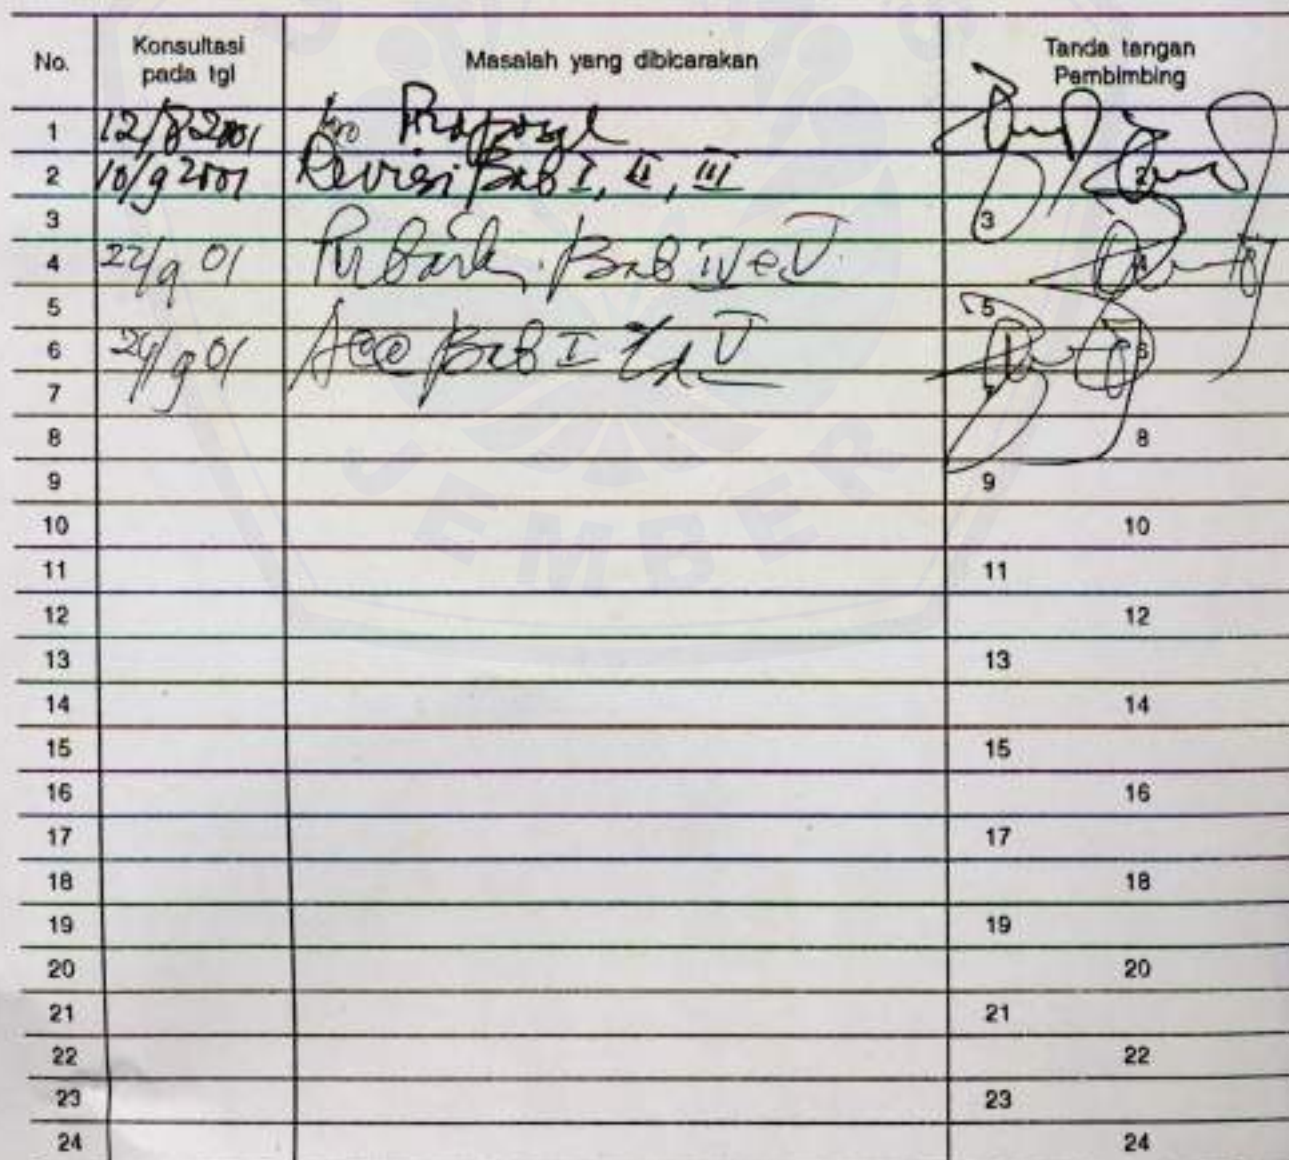 No. Konsultasi pada tgl Masalah yang dibicarakan Tanda tangan Pembimbing
1 12/8 2001 Acc Proposal
2 10/9 2001 Revisi Bab I, II, III 2
3 3
4 22/9 01 Bab IV e V 4
5 5
6 24/9 01 Acc Bab I V 6
7 7
8 8
9 9
10 10
11 11
12 12
13 13
14 14
15 15
16 16
17 17
18 18
19 19
20 20
21 21
22 22
23 23
24 24
JEMBER